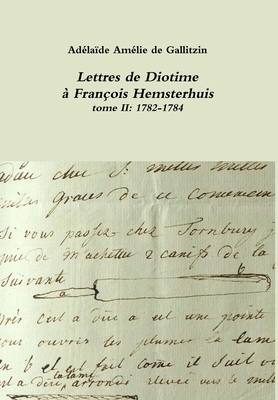 Adélaïde Amélie de Gallitzin
Lettres de Diotime
à François Hemsterhuis
tome II: 1782-1784
adeu chez St. milles milles
milles graces de ce comencem
Si vous passez chez Tornbury
de m'achetter 2 canifs de la
Suivante
a
b
Cest a dire a est une pointe
ouvrir les plumes la lam
b est fait come il suit
la lame
est a dire arrondi relevée vers le